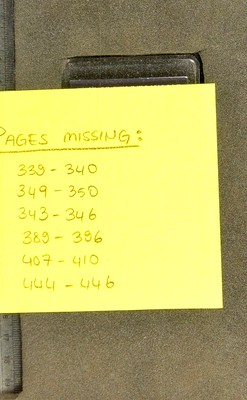 PAGES MISSING:
339 - 340
349 - 350
343 - 346
389 - 396
407 - 410
444 - 446